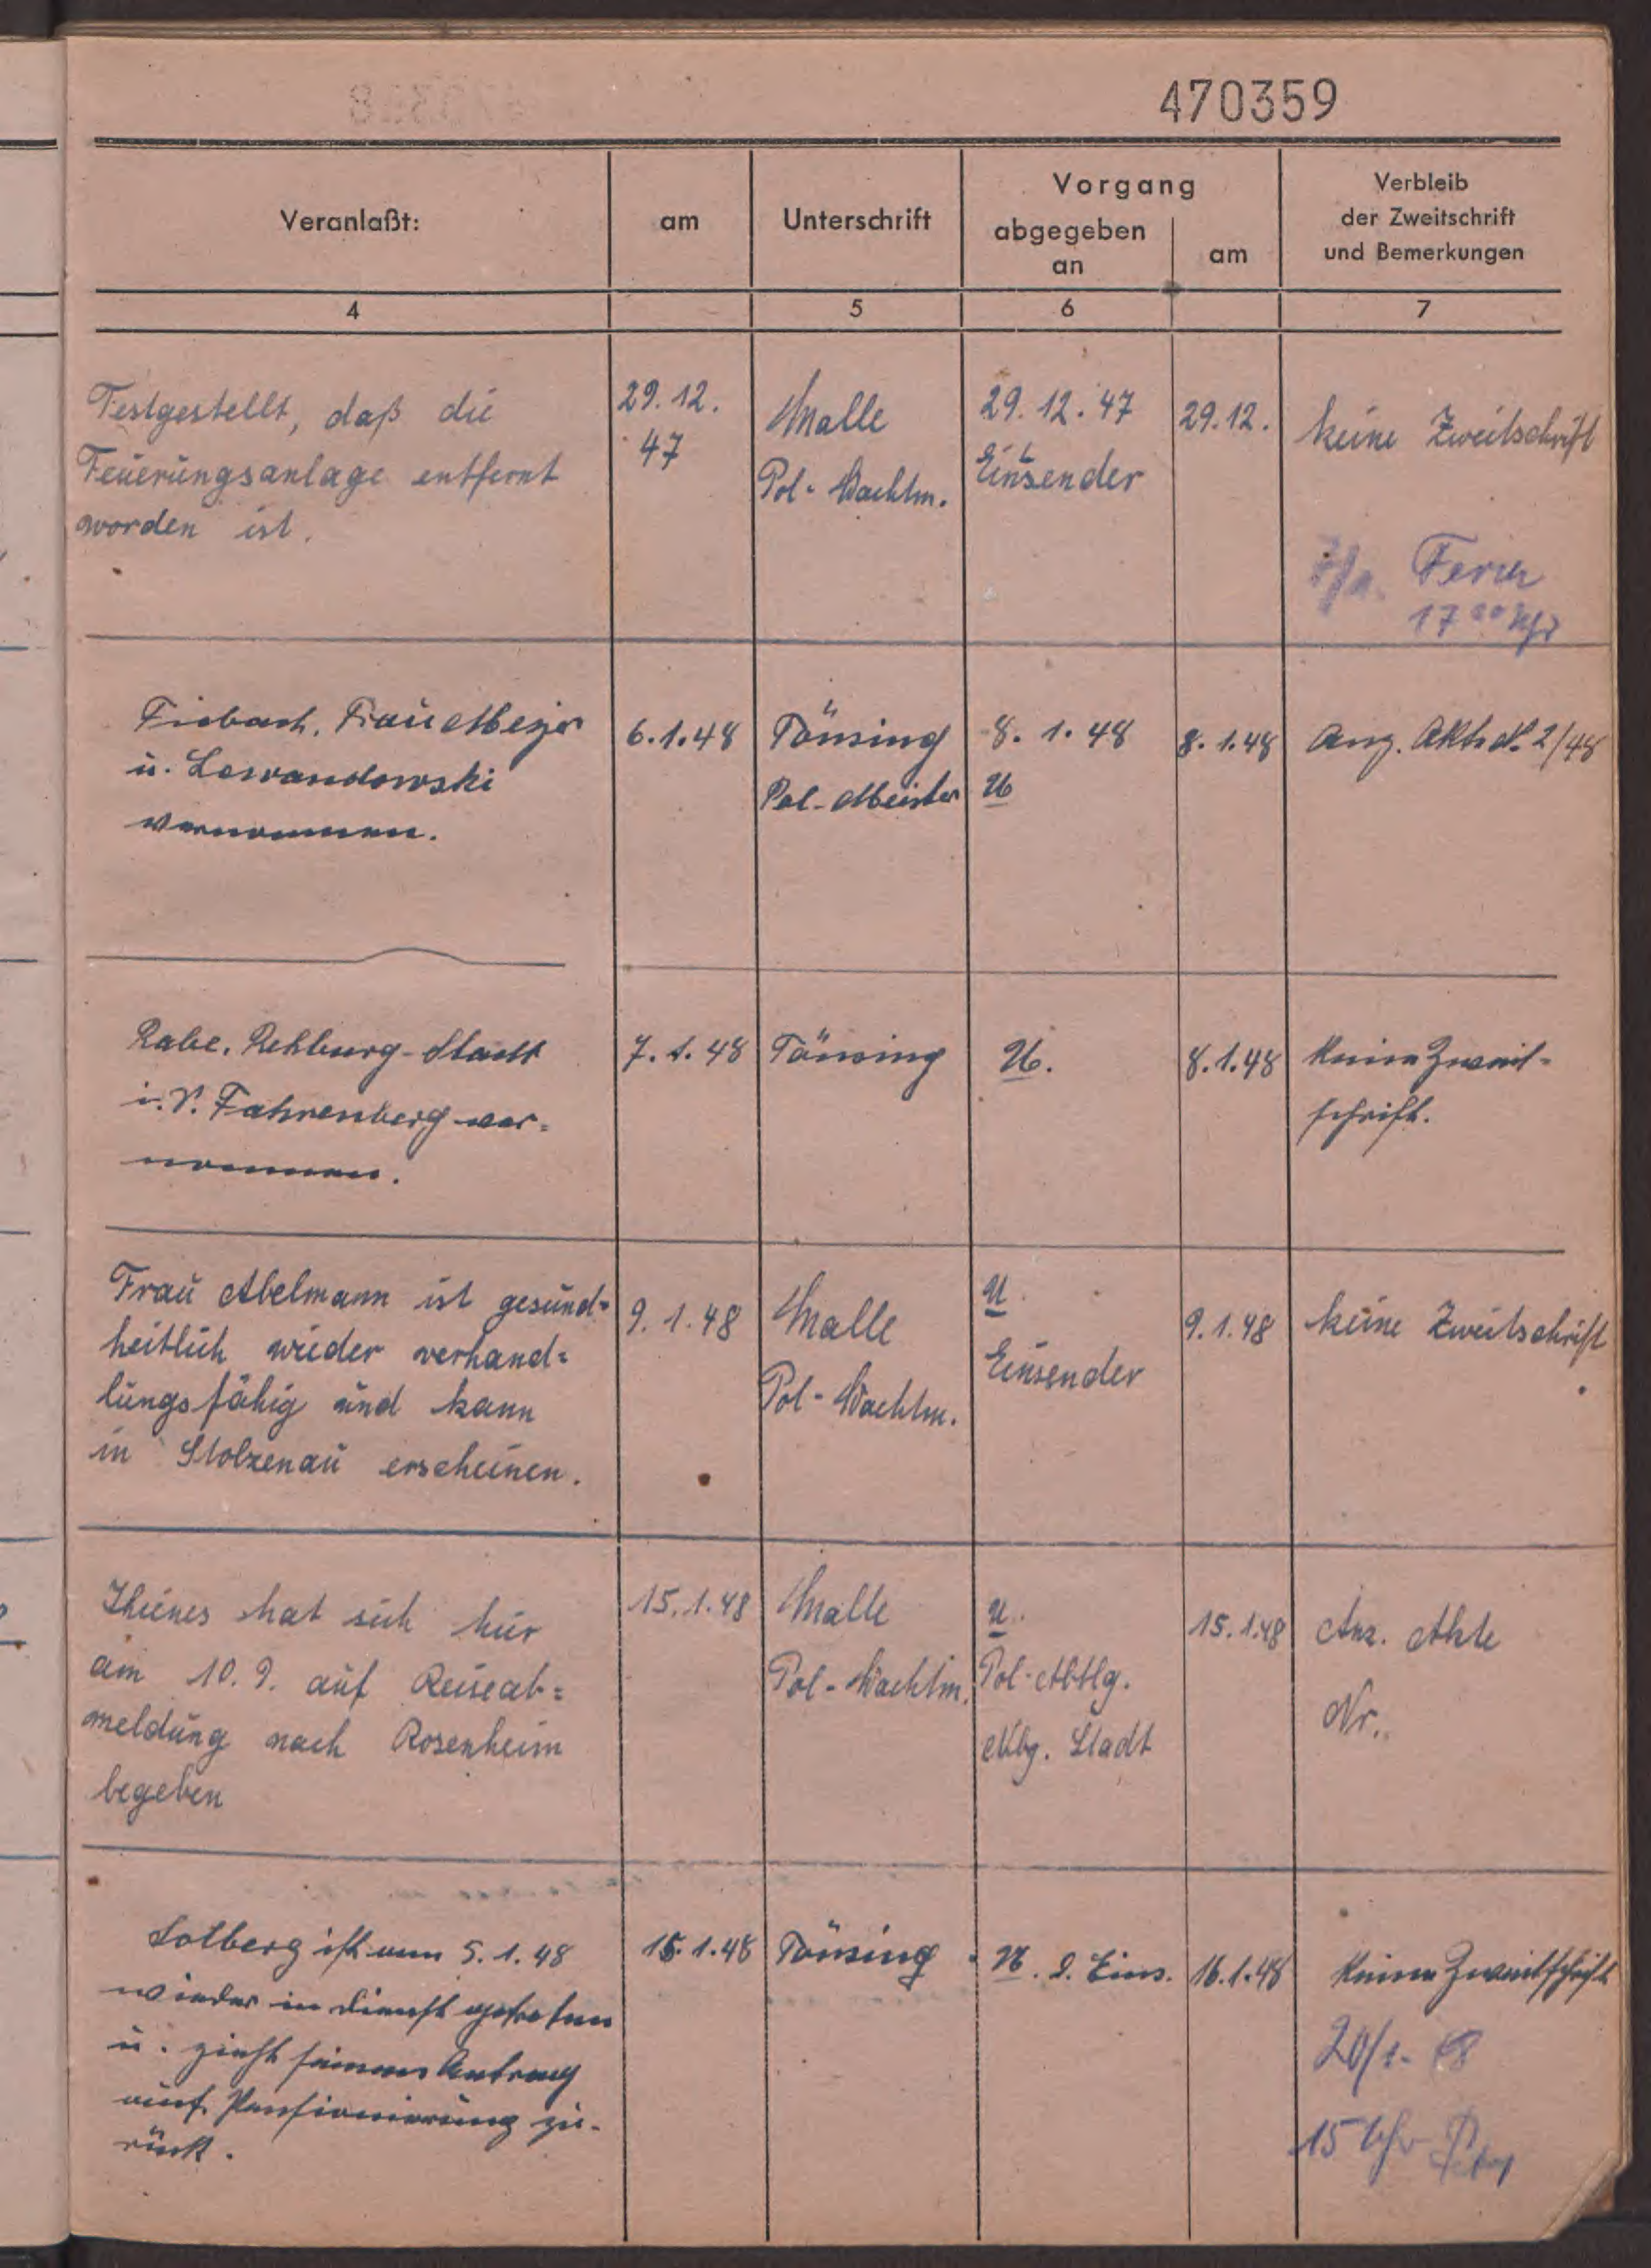 470359
Veranlaßt:
am
Unterschrift
Vorgang
abgegeben
an
am
Verbleib
der Zweitschrift
und Bemerkungen
4
5
6
7
Festgestellt, daß die
Feuerungsanlage entfernt
worden ist.
29.12.
47
Malle
Pol-Wachtm.
29.12.47
Einsender
29.12.
keine Zweitschrift
17 00 Uhr
Fiebach, Frau Meyer
u. Lewandowski
vernommen.
6.1.48
Tönsing
Pol-Meister
8.1.48
U
8.1.48
Anz. Akte N. 2/48
Rabe, Rehburg-Stadt
i.V. Fahrenberg ver=
nommen.
7.1.48
Tönsing
U.
8.1.48
Keine Zweit-
schrift.
Frau Abelmann ist gesund=
heitlich wieder verhand=
lungsfähig und kann
in Stolzenau erscheinen.
9.1.48
Malle
Pol-Wachtm.
U
Einsender
9.1.48
keine Zweitschrift
hat sich hier
am 10.9. auf Reiseab=
meldung nach Rosenheim
begeben
15.1.48
Malle
Pol-Wachtm.
U.
Pol-Abtlg.
Stadt
15.1.48
Anz. Akte
Nr.
Solberg ist am 5.1.48
wieder in Dienst getreten
u. zieht seinen Antrag
auf Pensionierung zu-
rück.
15.1.48
Tönsing
U. d. Eins.
16.1.48
Keine Zweitschrift
20/1. 48
15 Uhr